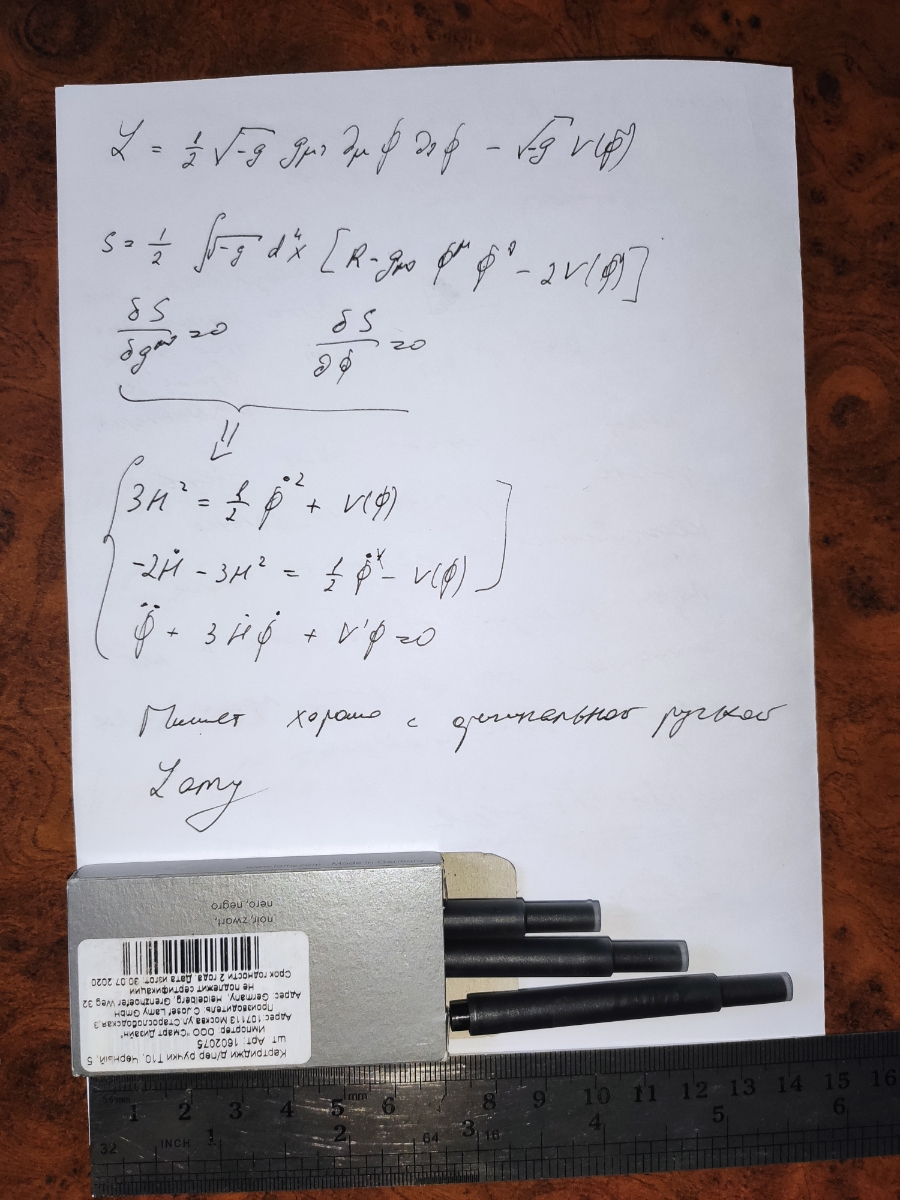 ℒ = 1/2 √-g gμν ∂μ ϕ ∂ν ϕ - √-g V(ϕ)
S = 1/2 ∫√-g d⁴x [R - gμν ϕ^μ ϕ^ν - 2V(ϕ)]
δS/δg^μν = 0 δS/∂ϕ = 0
⇓
3H² = 1/2 ϕ̇² + V(ϕ)
-2Ḣ - 3H² = 1/2 ϕ̇² - V(ϕ)
ϕ̈ + 3Ḣϕ̇ + V'ϕ = 0
Пишет хорошо с оригинальной ручкой
Lamy
Made in Germany
nero, negro
noir, zwart,
Картриджи д/пер ручки T10, Черный, 5
шт Арт.: 1602075
Импортер: ООО "Смарт Дизайн"
Адрес: 107113 Москва ул. Старослободская,3
Производитель: C.Josef Lamy GmbH
Адрес: Germany, Heidelberg, Grenzhoefer Weg 32
Не подлежит сертификации
Срок годности 2 года Дата изгот. 30.07.2020
1 2 3 4 5 mm 6 7 8 9 10 11 12 13 14 15 16
32 INCH 1 2 64 3 16 4 5 6